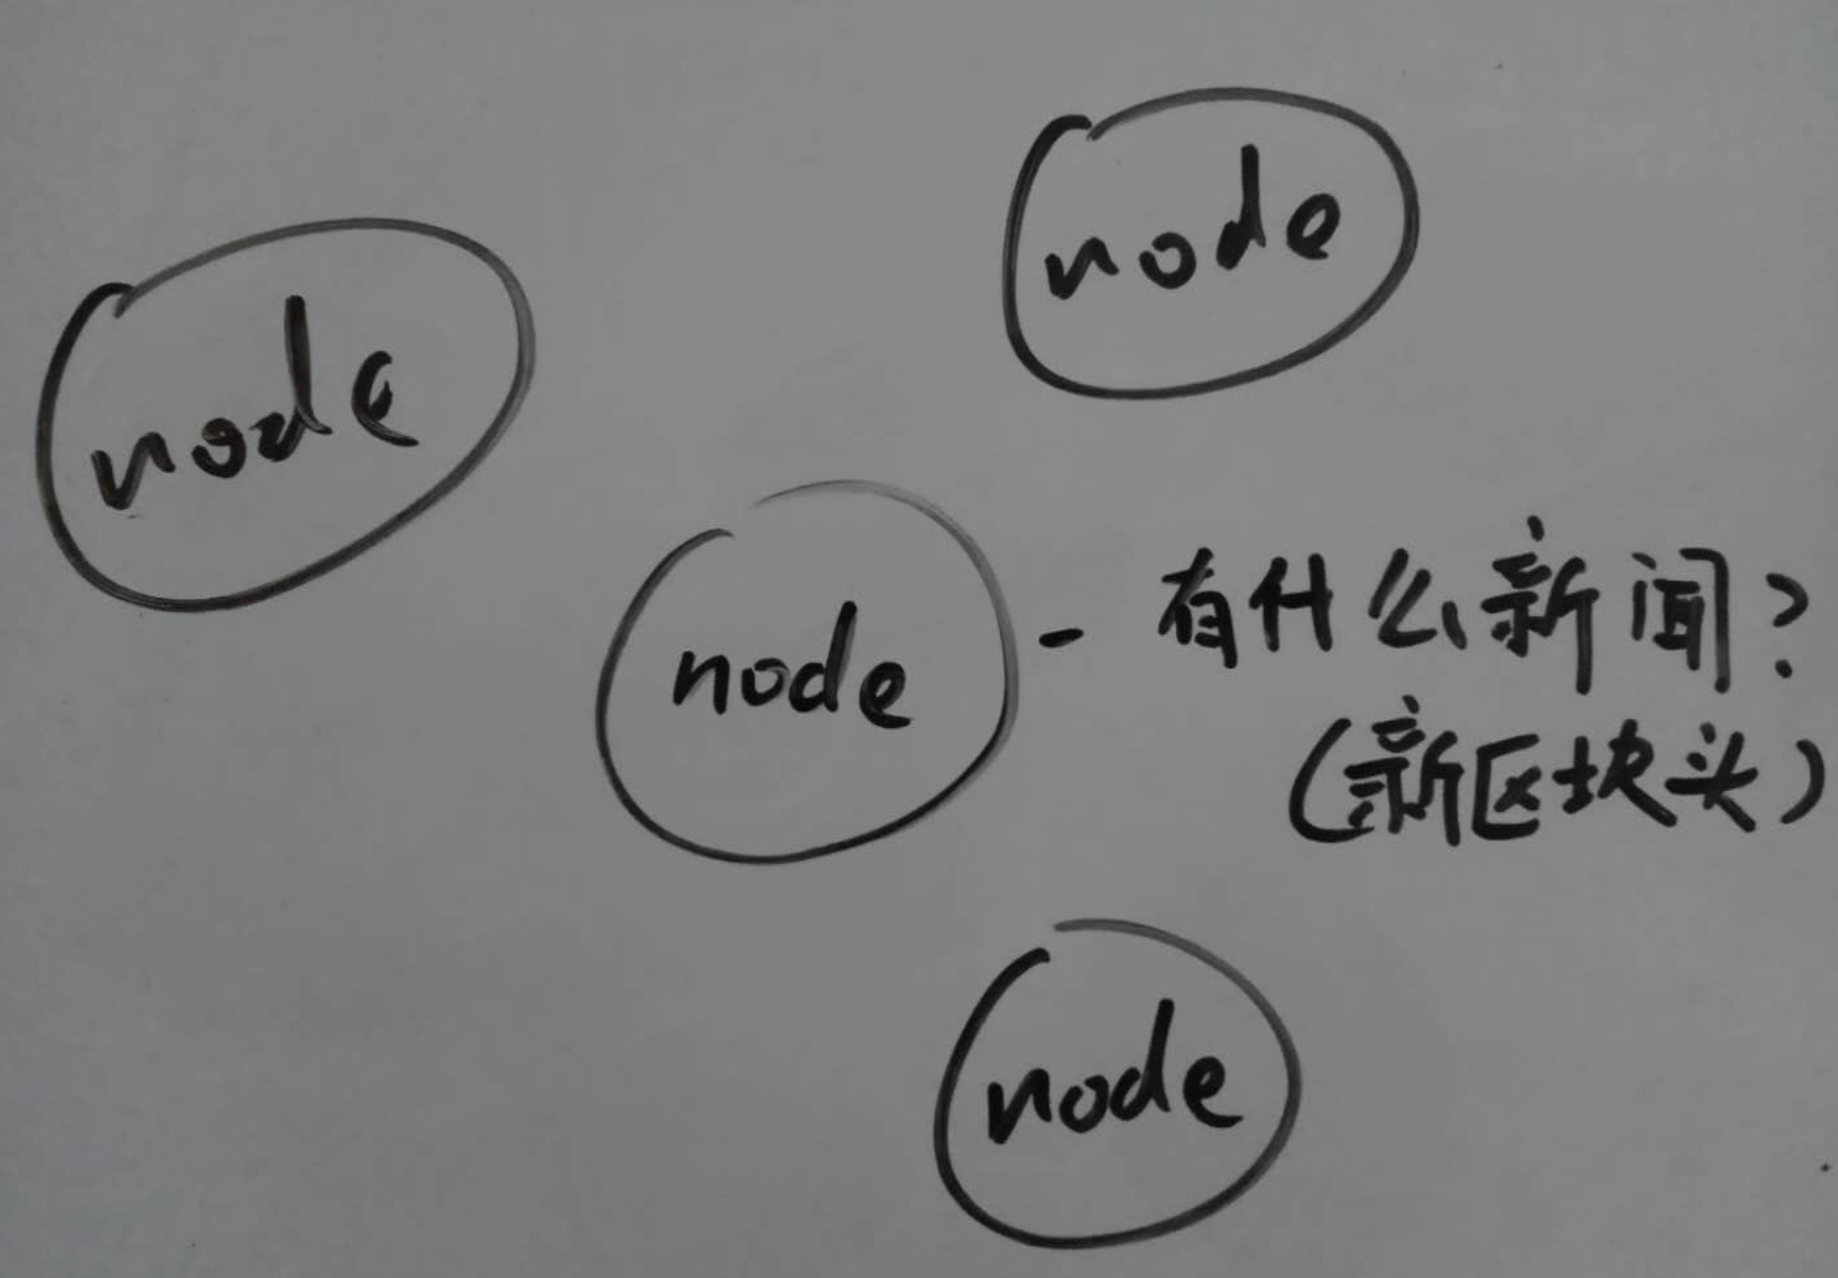 node
node
node - 有什么新闻?
(新区块头)
node